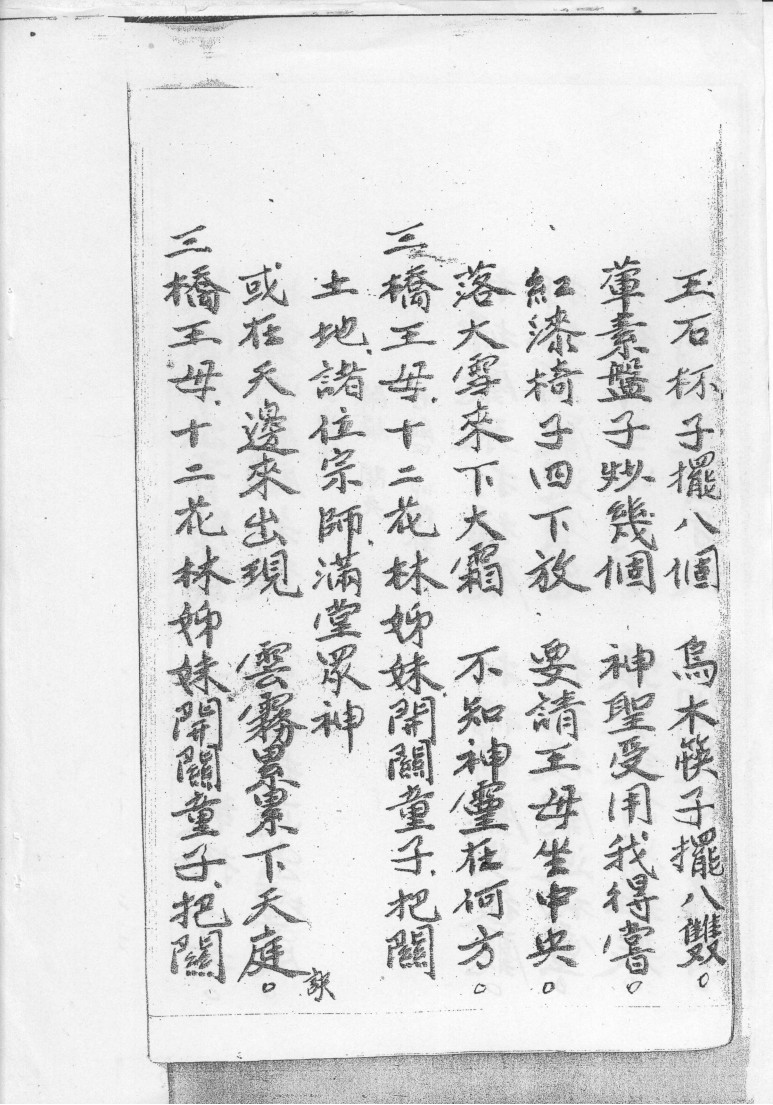 玉石杯子擺八個　烏木筷子擺八雙。
葷素盤子炒幾個　神聖受用我得嘗。
紅漆椅子四下放　要請王母坐中央。
落大雪來下大霜　不知神靈在何方。
三橋王母、十二花林姊妹、開關童子、把關
土地、諸位宗師、滿堂眾神
或在天邊來出現　雲霧累累下天庭。訣
三橋王母、十二花林姊妹、開關童子、把關